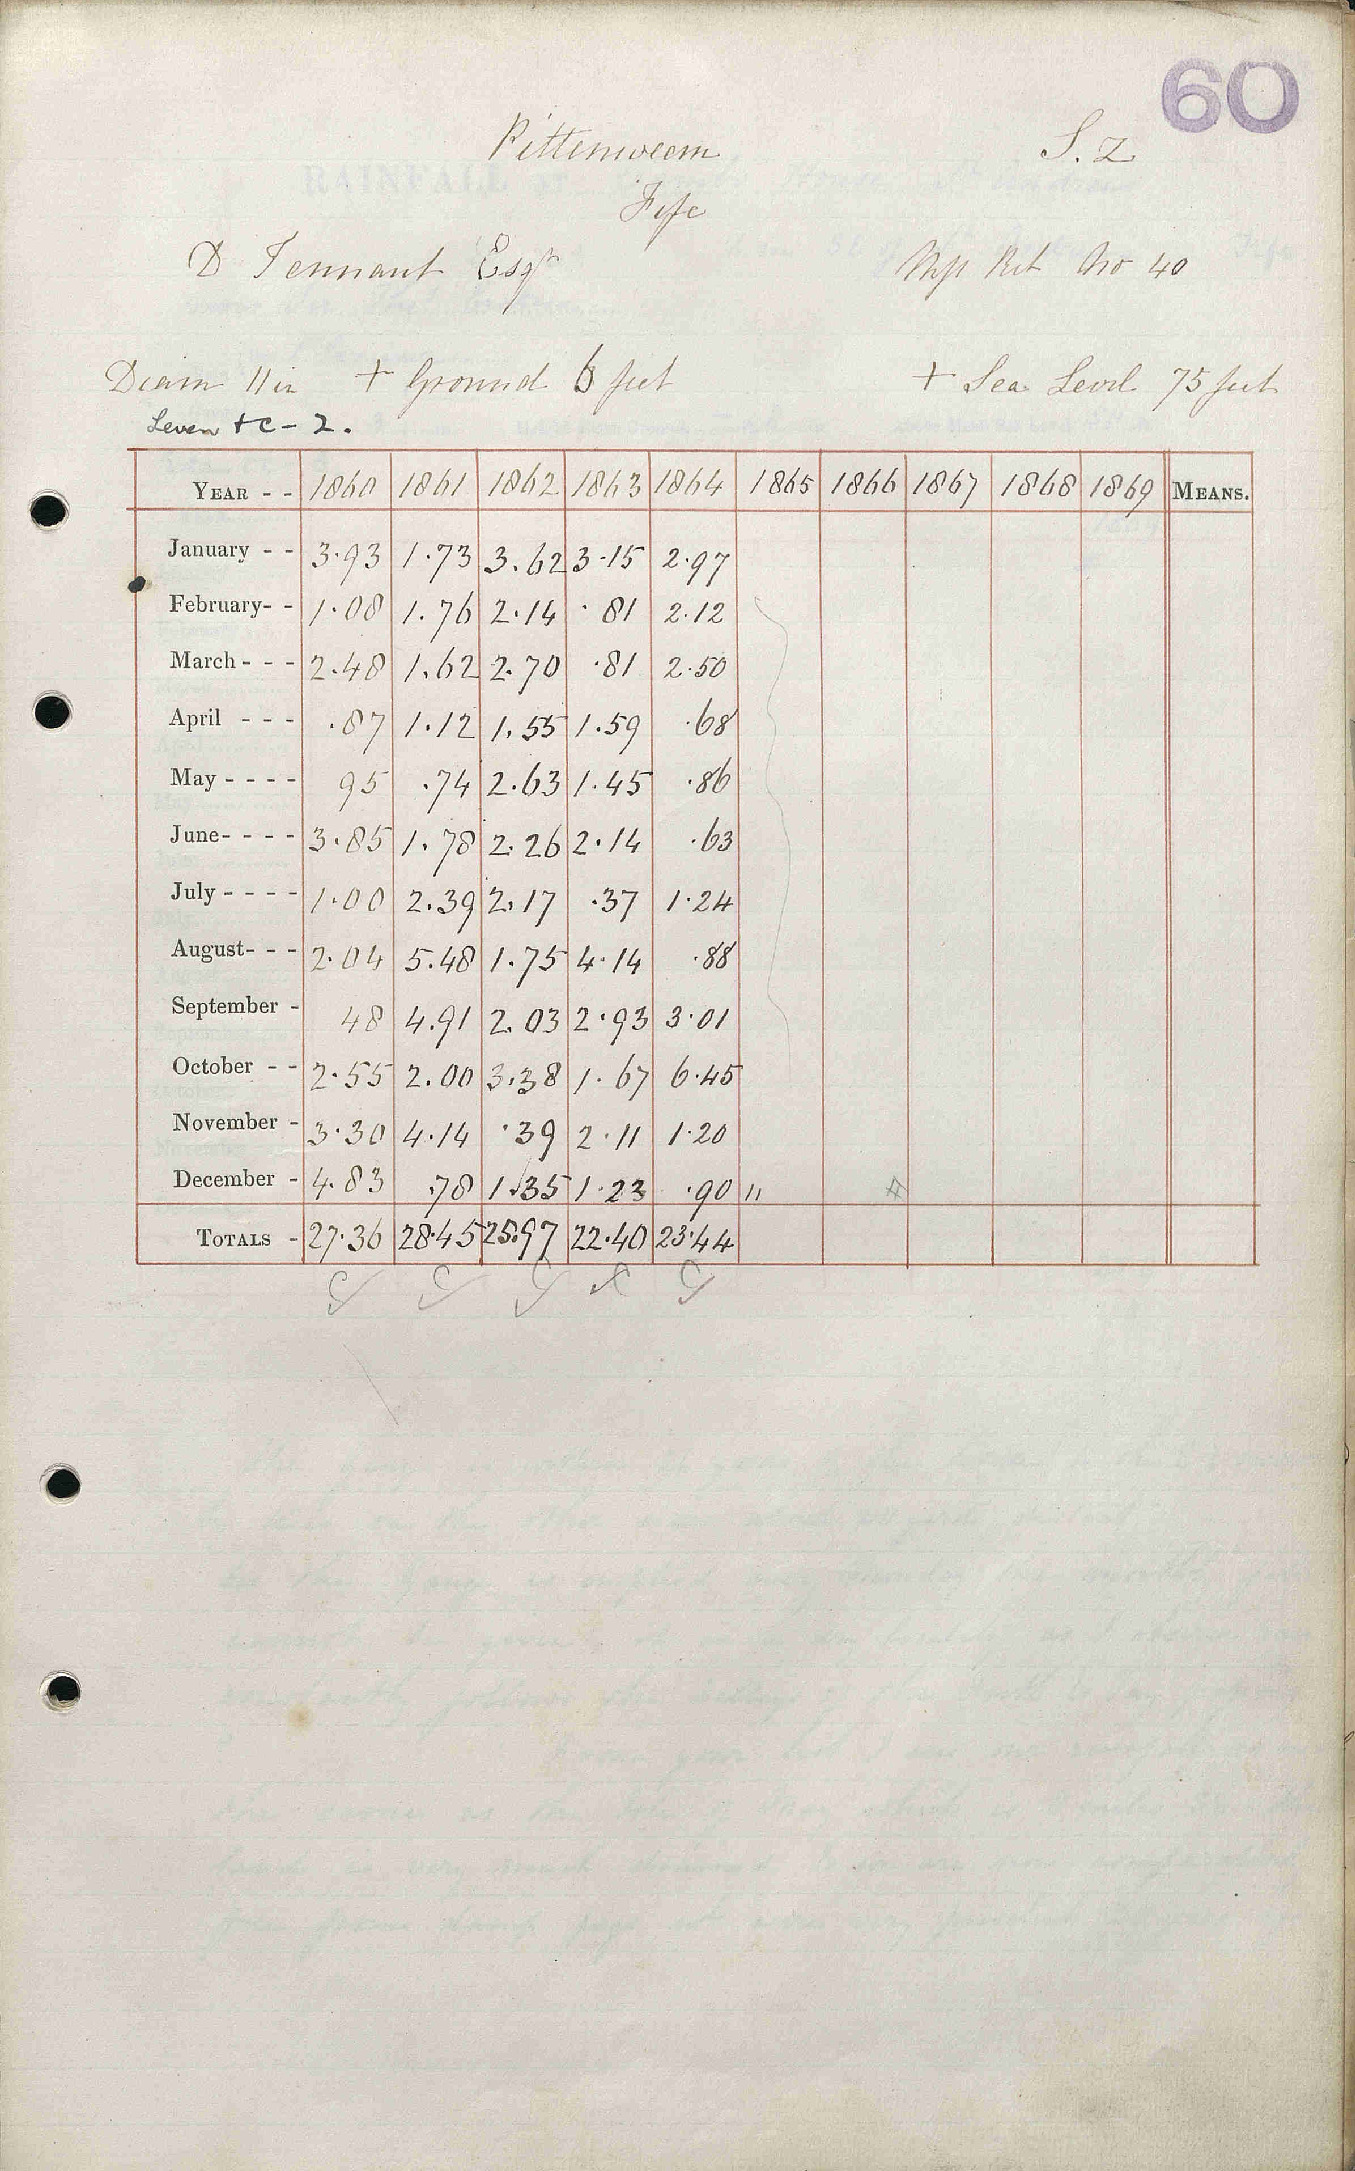 60
Pittenweem S. 2
Fife
D Tennant Esqr Ret No 40
Diam 11 in + Ground 6 feet + Sea Level 75 feet
Leven & C - 2.
YEAR - - 1860 1861 1862 1863 1864 1865 1866 1867 1868 1869 MEANS.
January - - 3.93 1.73 3.62 3.15 2.97
February- - 1.08 1.76 2.14 .81 2.12
March - - - 2.48 1.62 2.70 .81 2.50
April - - - .87 1.12 1.55 1.59 .68
May - - - - 95 .74 2.63 1.45 .86
June- - - - 3.85 1.78 2.26 2.14 .63
July - - - - 1.00 2.39 2.17 .37 1.24
August- - - 2.04 5.48 1.75 4.14 .88
September - 48 4.91 2.03 2.93 3.01
October - - 2.55 2.00 3.38 1.67 6.45
November - 3.30 4.14 .39 2.11 1.20
December - 4.83 .78 1.35 1.23 .90 "
TOTALS - 27.36 28.45 25.97 22.40 23.44